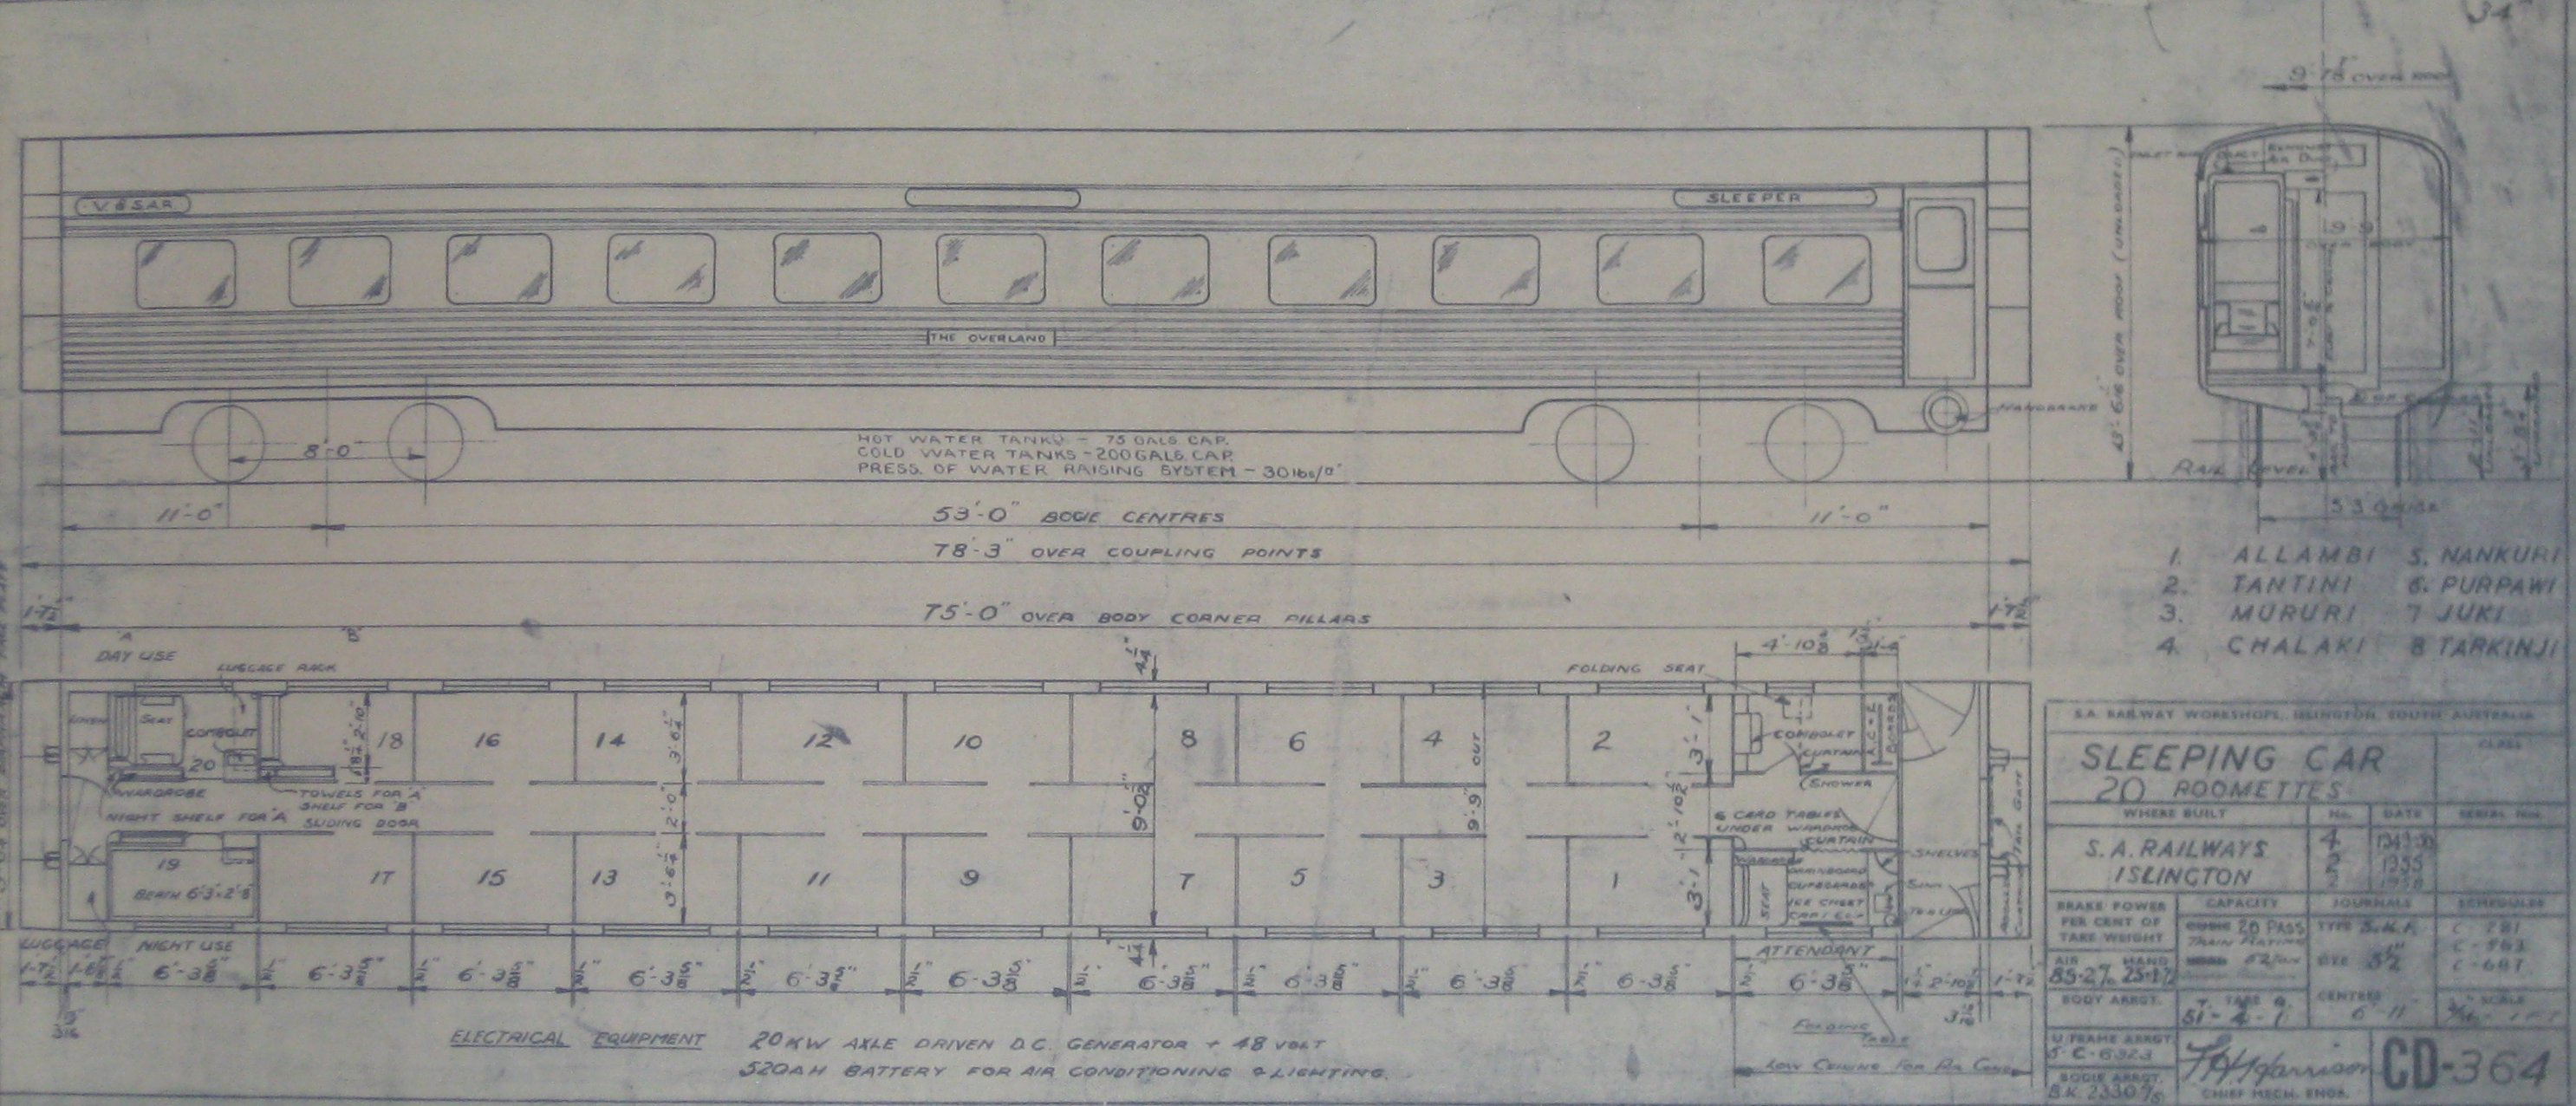 34
OVER ROOF
V & SAR
SLEEPER
THE OVERLAND
13'-6 OVER ROOF (UNLOADED)
HANDBRAKE
RAIL LEVEL
5'3 GAUGE
8'-0"
HOT WATER TANKS - 75 GALS. CAP.
COLD WATER TANKS - 200 GALS. CAP.
PRESS. OF WATER RAISING SYSTEM - 30 lbs/□"
11'-0"
53'-0" BOGIE CENTRES
11'-0"
78'-3" OVER COUPLING POINTS
75'-0" OVER BODY CORNER PILLARS
1'-7½"
1'-7½"
1. ALLAMBI 5. NANKURI
2. TANTINI 6. PURPAWI
3. MURURI 7 JUKI
4. CHALAKI 8 TARKINJI
'A'
'B'
DAY USE
LUGGAGE RACK
FOLDING SEAT
LINEN
SEAT
COMBOLET
20
18
16
14
12
10
8
6
4
2
2'-10"
3'-6¼"
2'-0"
3'-6¼"
9'-0½"
9'-9" OUT
3'-1"
2'-10½"
3'-1"
COMBOLET
CURTAIN
SHOWER
WARDROBE
TOWELS FOR 'A'
SHELF FOR 'B'
NIGHT SHELF FOR 'A'
SLIDING DOOR
6 CARD TABLES
UNDER WARDROBE
CURTAIN
SHELVES
SINK
SEAT
ICE CHEST
19
BERTH 6'-3"x2'-6"
17
15
13
11
9
7
5
3
1
LUGGAGE
NIGHT USE
ATTENDANT
6'-3⅝" 6'-3⅝" 6'-3⅝" 6'-3⅝" 6'-3⅝" 6'-3⅝" 6'-3⅝" 6'-3⅝" 6'-3⅝" 6'-3⅝" 6'-3⅝"
FOLDING
TABLE
LOW CEILING FOR AIR COND.
ELECTRICAL EQUIPMENT 20KW AXLE DRIVEN D.C. GENERATOR + 48 VOLT
520AH BATTERY FOR AIR CONDITIONING & LIGHTING.
S.A. RAILWAY WORKSHOPS, ISLINGTON, SOUTH AUSTRALIA
SLEEPING CAR
20 ROOMETTES
CLASS
WHERE BUILT
No.
DATE
SERIAL Nos.
S.A. RAILWAYS
ISLINGTON
4
2 1955
BRAKE POWER
PER CENT OF
TARE WEIGHT
AIR HAND
85·2%
CAPACITY
20 PASS
JOURNALS
TYPE S.K.F.
SIZE 5½"
CENTRES
6'-11"
SCHEDULES
C - 781
TARE
51 - 4 - 1
SCALE
BODY ARRGT.
U/FRAME ARRGT.
S-C-6323
BOGIE ARRGT.
B.K. 2330
F. H. Harrison
CHIEF MECH. ENGR.
CD-364